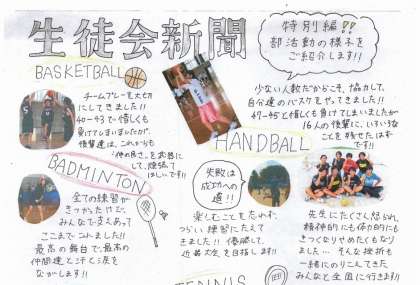 生徒会新聞
特別編!!
部活動の様子を
ご紹介します!!
BASKETBALL
チームプレーを大切
にしてきました!!
40-43で惜しくも
負けてしまいましたが、
後輩達は、これからも
"仲の良さ"を武器に
して、頑張って
ほしいです!!
少ない人数だからこそ、協力して、
自分達のバスケをやってきました!!
47-45と惜しくも負けてしまいましたが
16人の後輩に、いろいろな
ことを残せたはず
です!!
HANDBALL
失敗は
成功への
道!!
楽しむことを忘れず、
つらい練習にたえて
きました!! 優勝して、
近畿大会を目指します!!
先生にたくさん怒られ、
精神的にも体力的にも
きつくなりやめたくもなり
ました… そんな挫折も
一緒にのりこえてきた
みんなと全国に行きます!!
BADMINTON
全ての練習が
きつかったけど、
みんなで支えあって
ここまでこれました!!
最高の舞台で、最高の
仲間達と汗と涙を
ながします!!
TENNIS